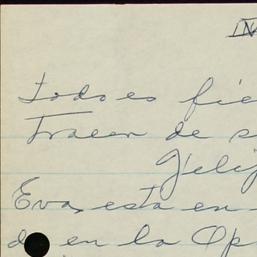 IN
todo es fie
Traen de s
Felip
Eva, esta en
d en la Op